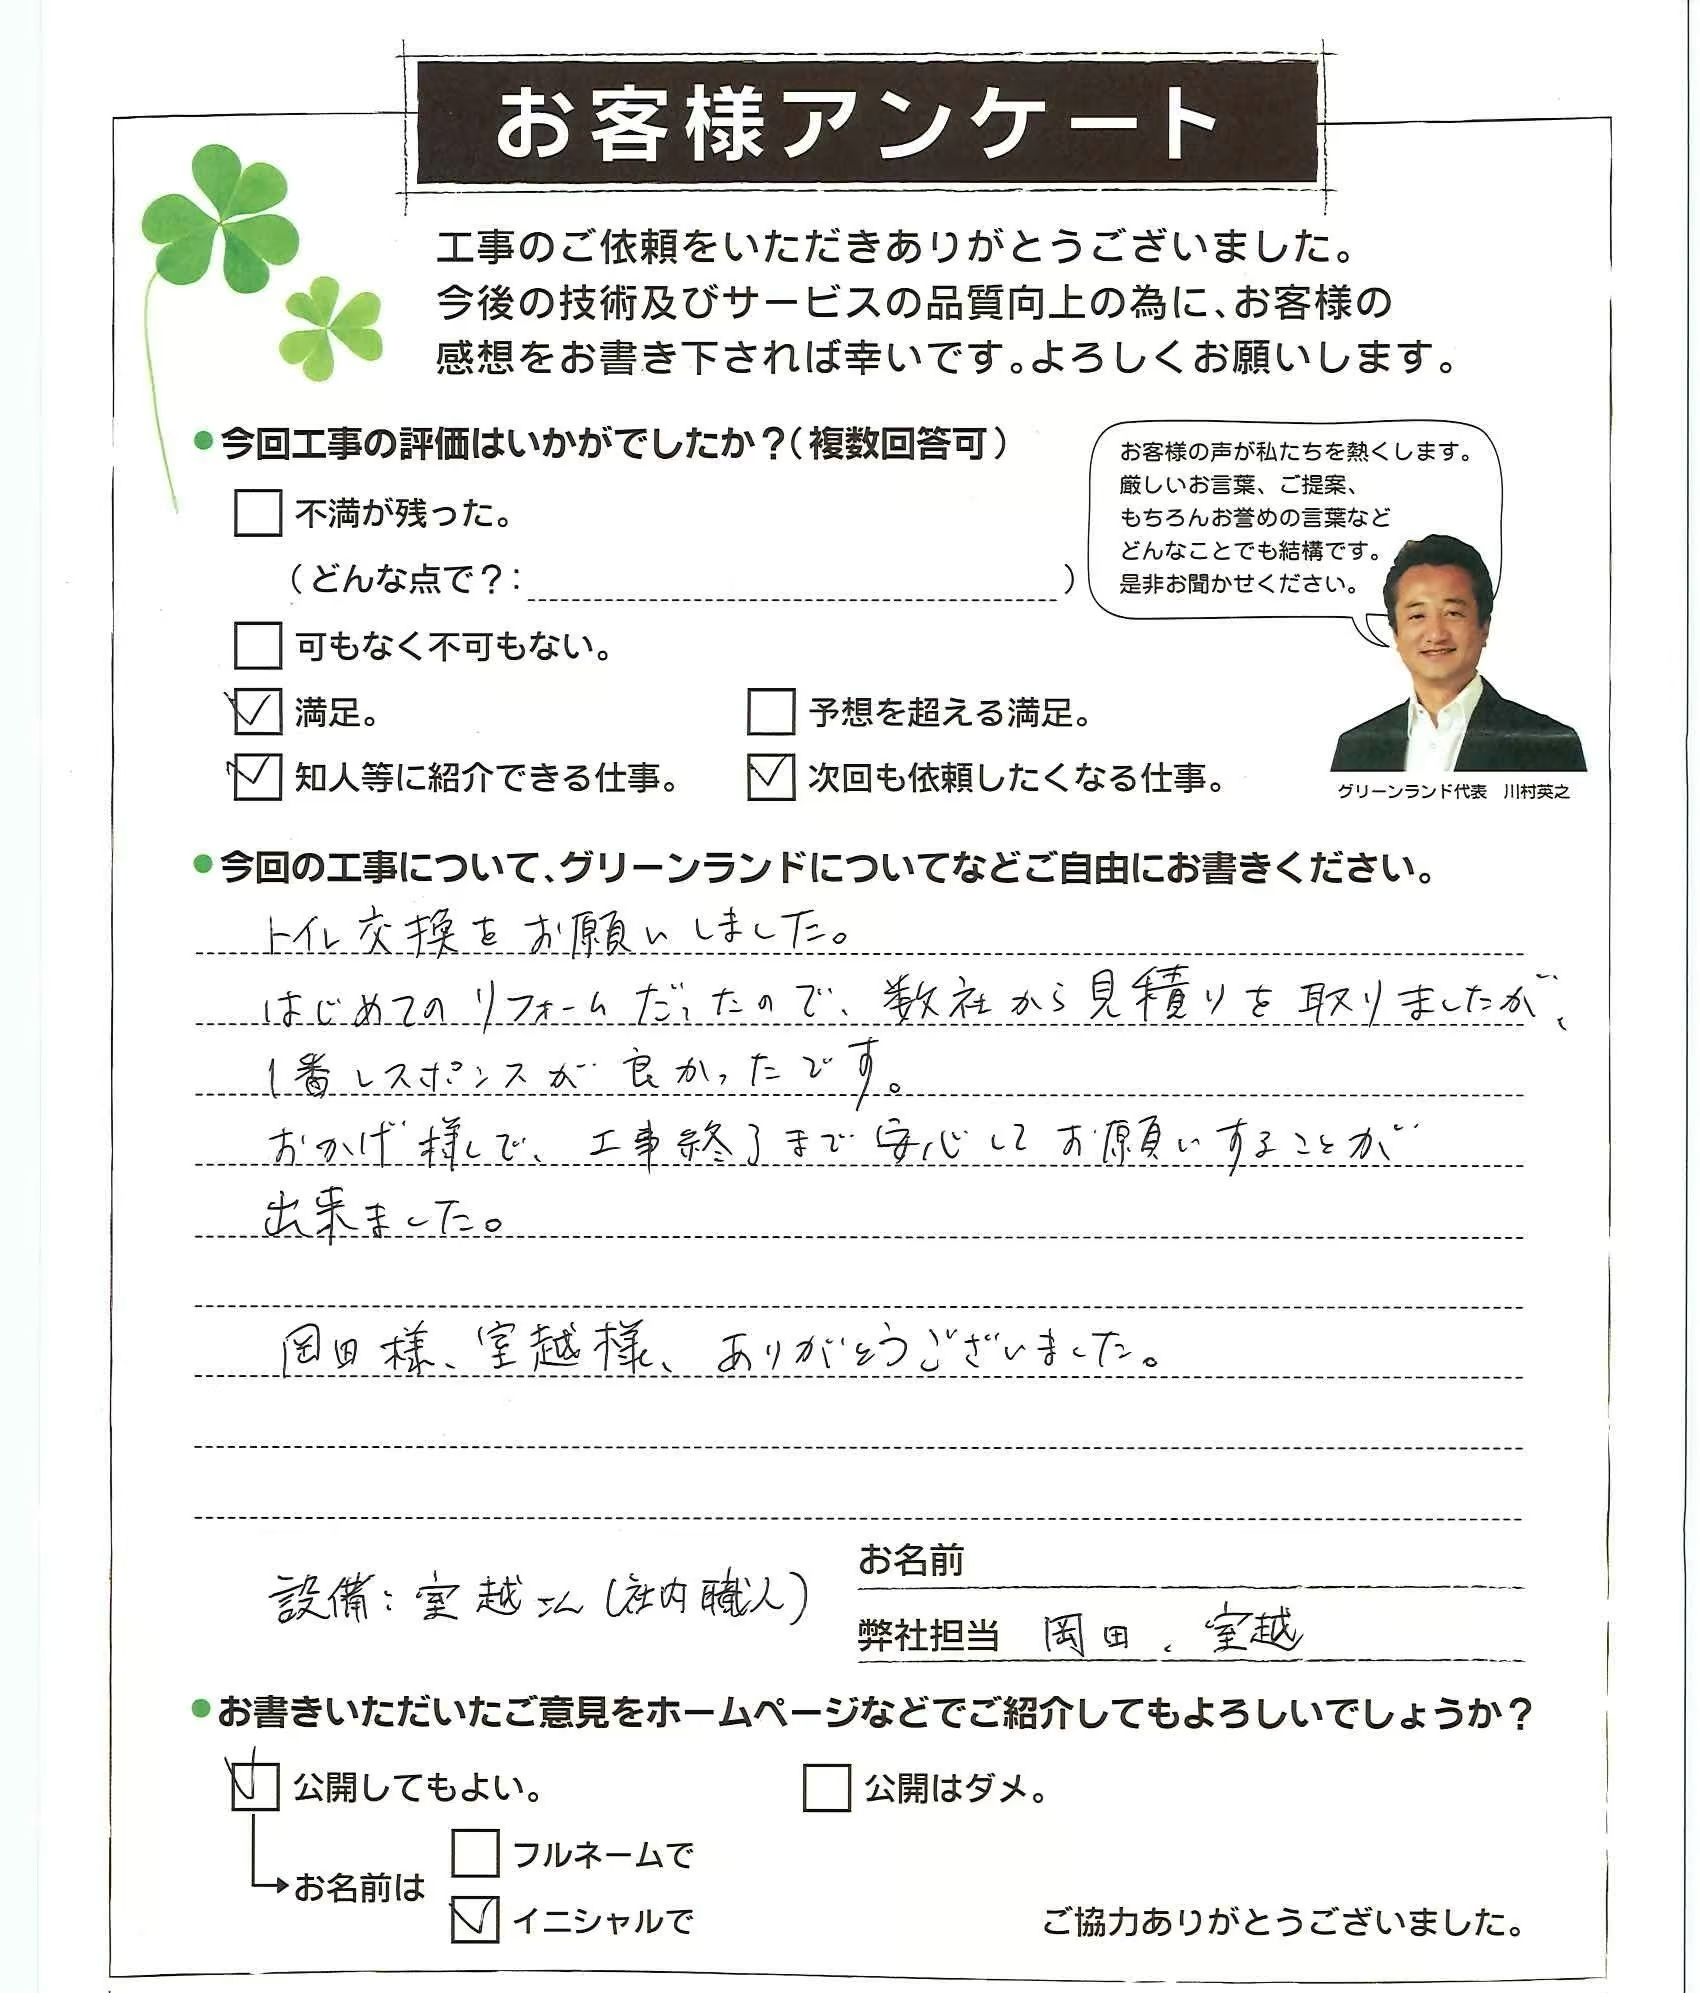 お客様アンケート
工事のご依頼をいただきありがとうございました。
今後の技術及びサービスの品質向上の為に、お客様の
感想をお書き下されば幸いです。よろしくお願いします。
●今回工事の評価はいかがでしたか？（複数回答可）
お客様の声が私たちを熱くします。
厳しいお言葉、ご提案、
もちろんお誉めの言葉など
どんなことでも結構です。
是非お聞かせください。
□ 不満が残った。
（どんな点で？：　　　）
□ 可もなく不可もない。
☑ 満足。　□ 予想を超える満足。
☑ 知人等に紹介できる仕事。　☑ 次回も依頼したくなる仕事。
グリーンランド代表　川村英之
●今回の工事について、グリーンランドについてなどご自由にお書きください。
トイレ交換をお願いしました。
はじめてのリフォームだったので、数社から見積りを取りましたが、
1番レスポンスが良かったです。
おかげ様で、工事終了まで安心してお願いすることが
出来ました。
岡田様、室越様、ありがとうございました。
設備：室越さん（社内職人）
お名前
弊社担当　岡田、室越
●お書きいただいたご意見をホームページなどでご紹介してもよろしいでしょうか？
☑ 公開してもよい。　□ 公開はダメ。
□ フルネームで
お名前は
☑ イニシャルで
ご協力ありがとうございました。